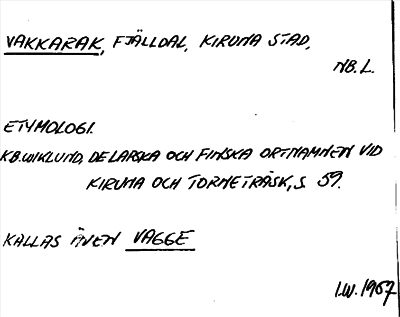 VAKKARAK, FJÄLLDAL, KIRUNA STAD,
NB.L.
ETYMOLOGI.
K.B.WIKLUND, DE LAPSKA OCH FINSKA ORTNAMNEN VID
KIRUNA OCH TORNETRÄSK, S. 59.
KALLAS ÄVEN VAGGE
I.W. 1967